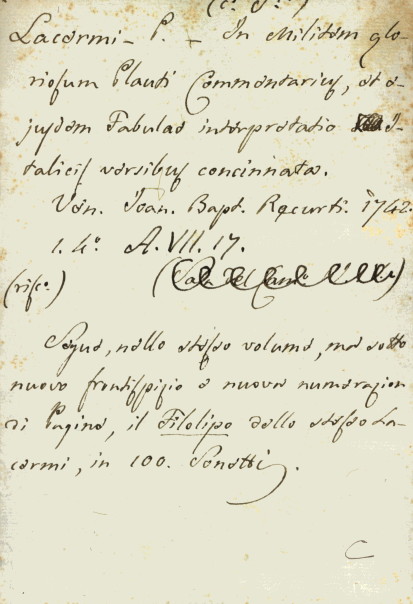 (c. s.)
Lacermi - P. - In Militem glo-
riosum Plauti Commentarius, et e-
jusdem Fabulae interpretatio I-
talicis versibus concinnata.
Ven. Joan. Bapt. Recurti. 1742.
1. 4°. A. VII. 17.
(risc.) (Sala del
Segue, nello stesso volume, ma sotto
nuovo frontispizio e nuova numerazion
di Pagine, il Filolipo dello stesso La-
cermi, in 100. Sonetti.
C